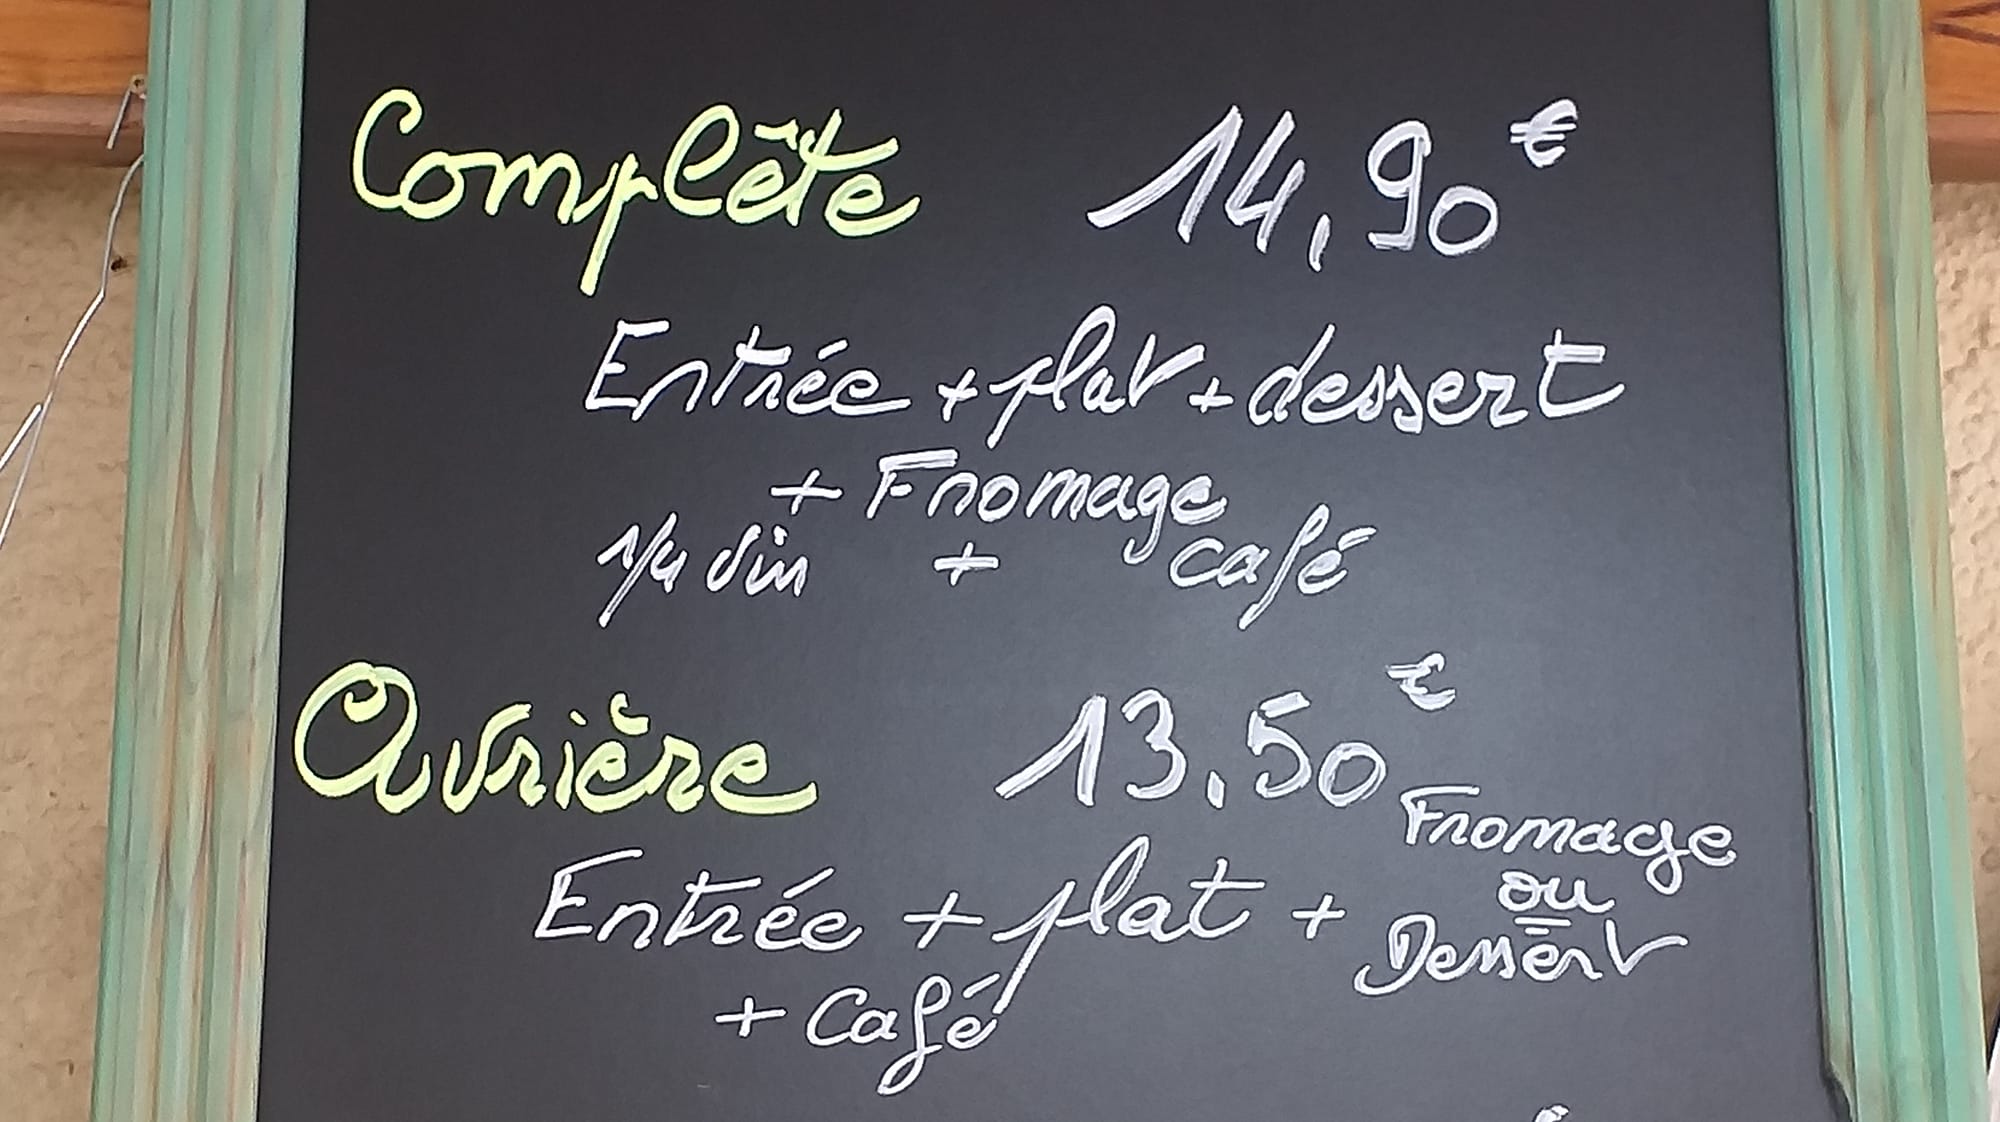 Complête 14,90€
Entrée + plat + dessert
+ Fromage
1/4 vin + café
Ouvrière 13.50€
Entrée + plat + Fromage
ou
Dessert
+ Café